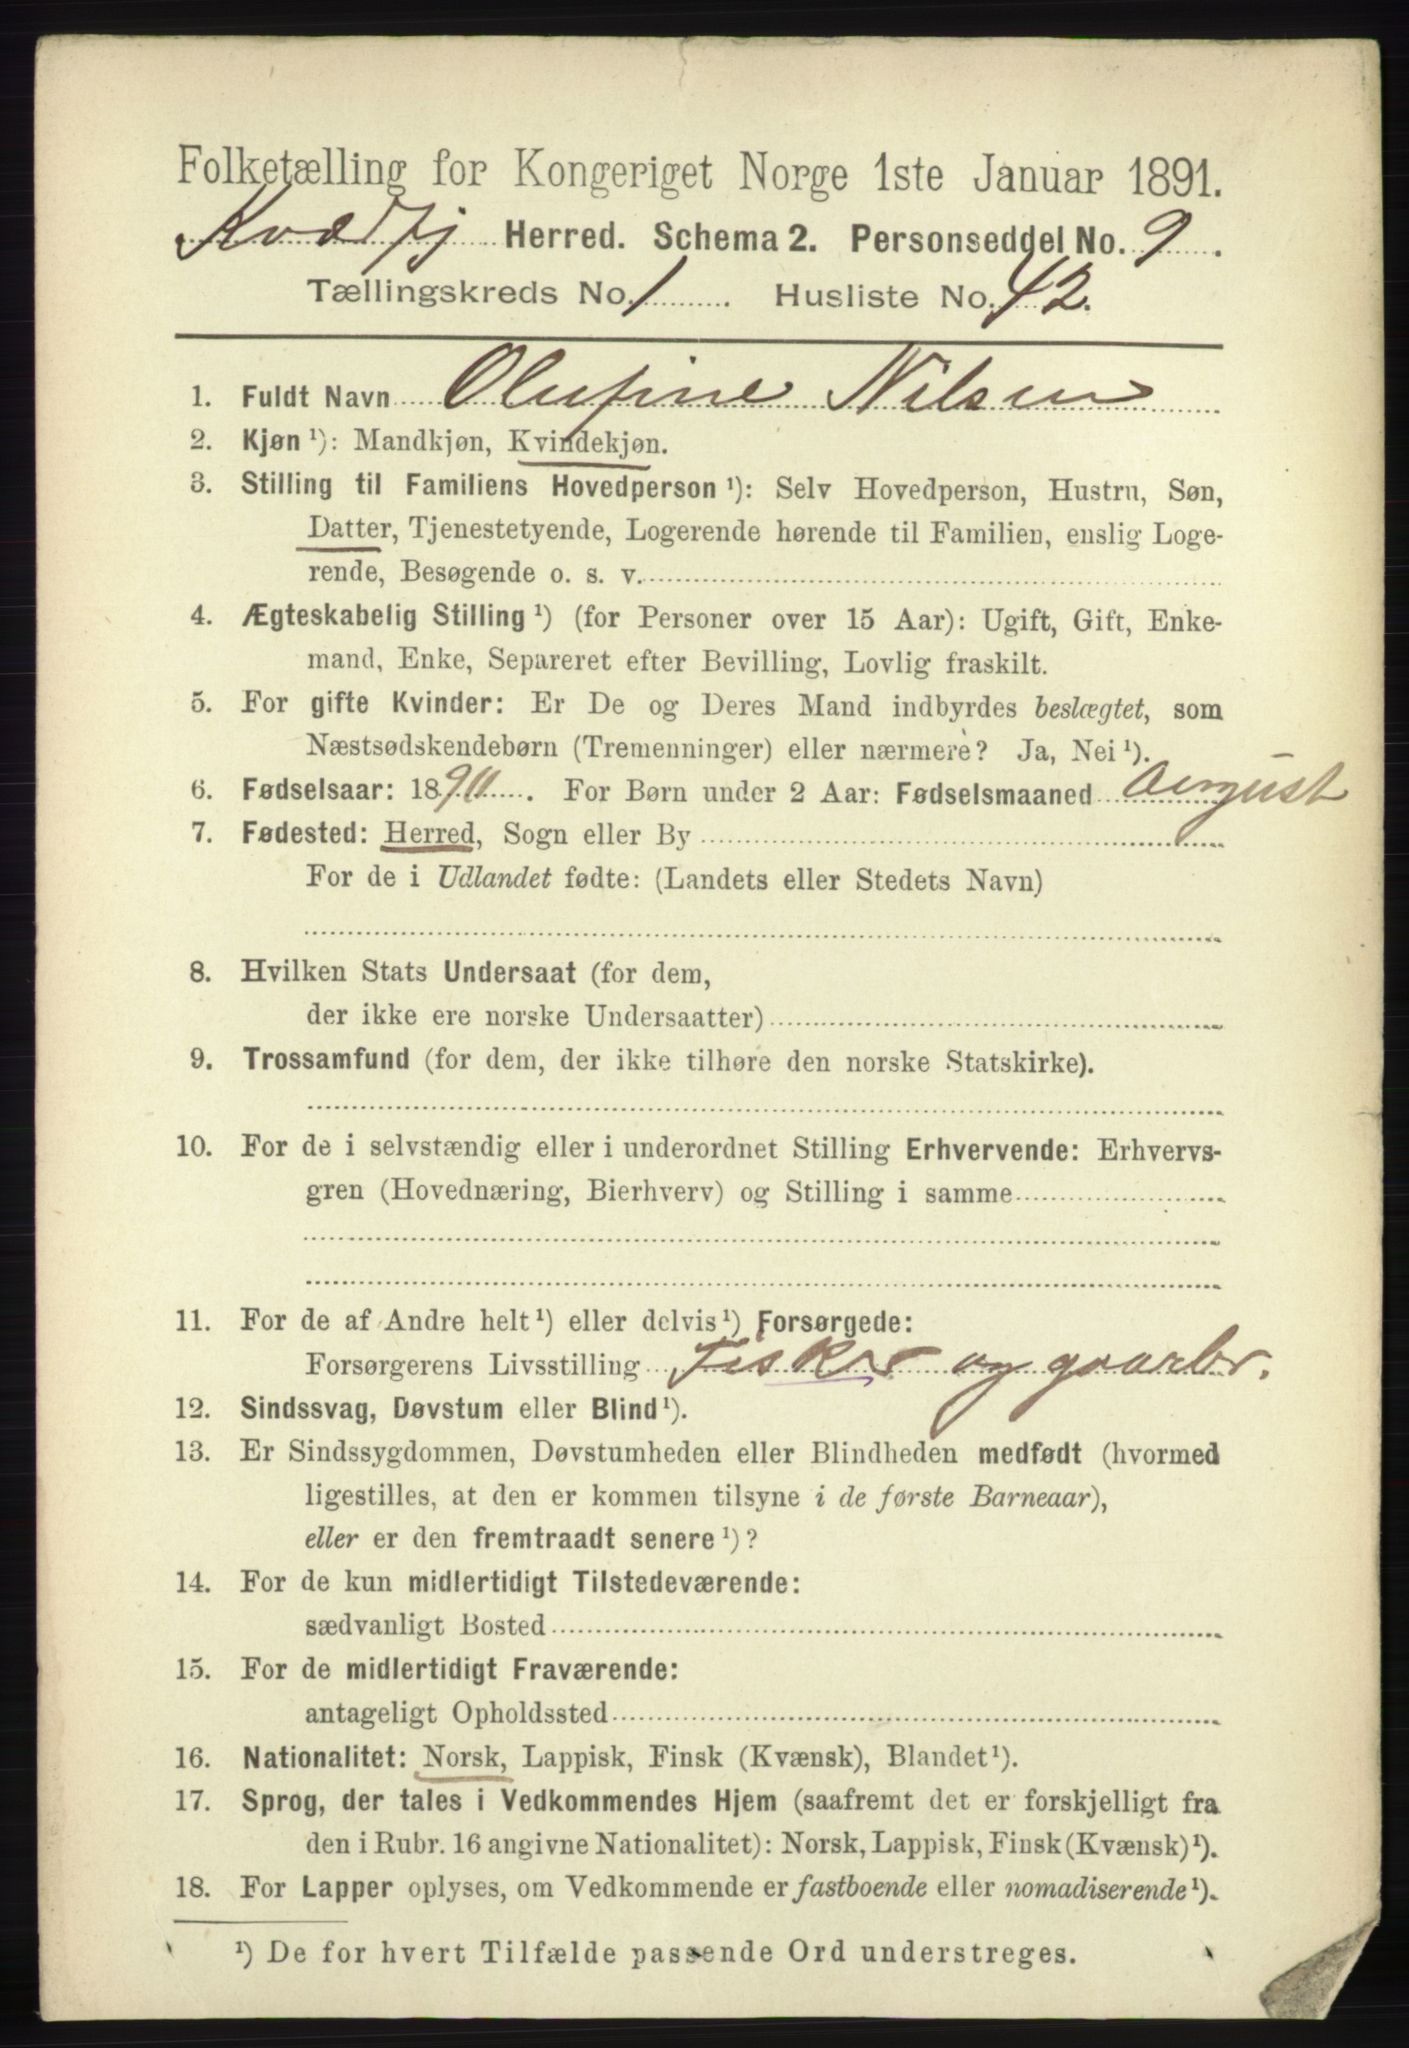 Folketælling for Kongeriget Norge 1ste Januar 1891.
Kvædfj Herred. Schema 2. Personseddel No. 9.
Tællingskreds No. 1. Husliste No. 42.
1. Fuldt Navn Olufine Nilsen
2. Kjøn ¹): Mandkjøn, Kvindekjøn.
3. Stilling til Familiens Hovedperson ¹): Selv Hovedperson, Hustru, Søn,
Datter, Tjenestetyende, Logerende hørende til Familien, enslig Loge-
rende, Besøgende o. s. v.
4. Ægteskabelig Stilling ¹) (for Personer over 15 Aar): Ugift, Gift, Enke-
mand, Enke, Separeret efter Bevilling, Lovlig fraskilt.
5. For gifte Kvinder: Er De og Deres Mand indbyrdes beslægtet, som
Næstsødskendebørn (Tremenninger) eller nærmere? Ja, Nei ¹).
6. Fødselsaar: 18 . For Børn under 2 Aar: Fødselsmaaned August
7. Fødested: Herred, Sogn eller By
For de i Udlandet fødte: (Landets eller Stedets Navn)
8. Hvilken Stats Undersaat (for dem,
der ikke ere norske Undersaatter)
9. Trossamfund (for dem, der ikke tilhøre den norske Statskirke).
10. For de i selvstændig eller i underordnet Stilling Erhvervende: Erhvervs-
gren (Hovednæring, Bierhverv) og Stilling i samme
11. For de af Andre helt ¹) eller delvis ¹) Forsørgede:
Forsørgerens Livsstilling Fisker og gaarbr.
12. Sindssvag, Døvstum eller Blind ¹).
13. Er Sindssygdommen, Døvstumheden eller Blindheden medfødt (hvormed
ligestilles, at den er kommen tilsyne i de første Barneaar),
eller er den fremtraadt senere ¹)?
14. For de kun midlertidigt Tilstedeværende:
sædvanligt Bosted
15. For de midlertidigt Fraværende:
antageligt Opholdssted
16. Nationalitet: Norsk, Lappisk, Finsk (Kvænsk), Blandet ¹).
17. Sprog, der tales i Vedkommendes Hjem (saafremt det er forskjelligt fra
den i Rubr. 16 angivne Nationalitet): Norsk, Lappisk, Finsk (Kvænsk) ¹).
18. For Lapper oplyses, om Vedkommende er fastboende eller nomadiserende ¹).
¹) De for hvert Tilfælde passende Ord understreges.